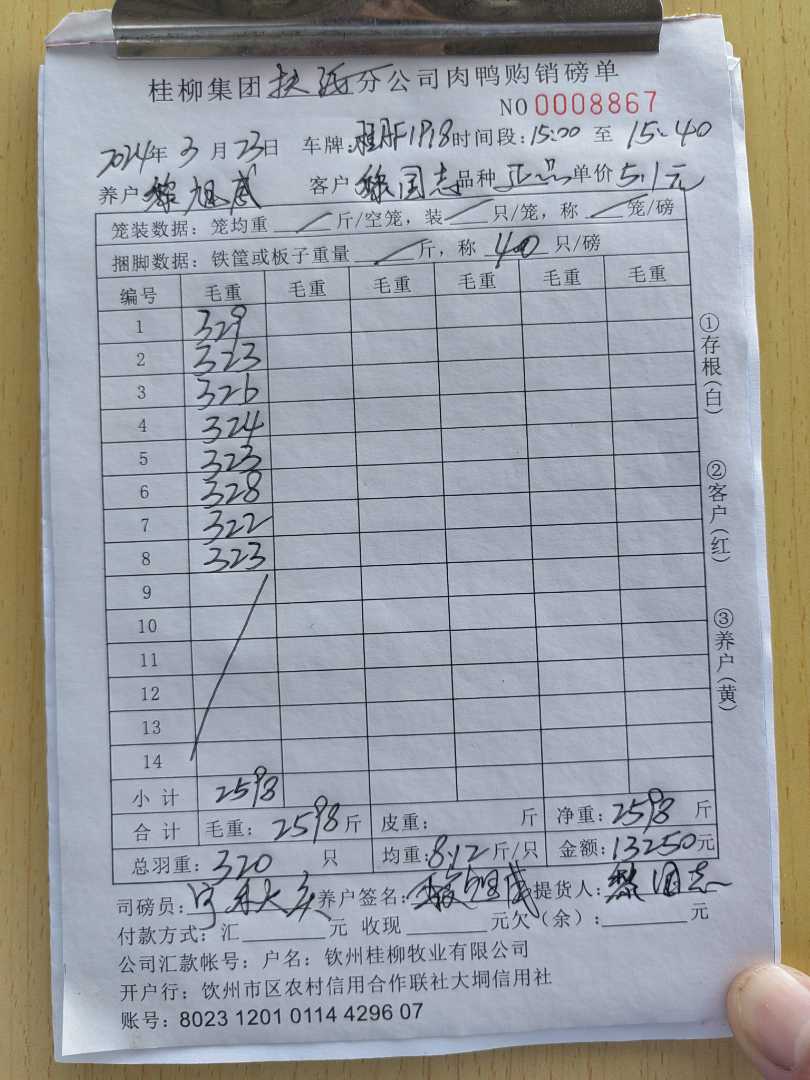 桂柳集团扶绥分公司肉鸭购销磅单
NO 0008867
2024年3月23日 车牌: 时间段:15:00 至 15:40
养户 黎旭威 客户 黎国志 品种 正品 单价 5.1元
笼装数据: 笼均重 / 斤/空笼, 装 / 只/笼, 称 / 笼/磅
捆脚数据: 铁筐或板子重量 / 斤, 称 40 只/磅
编号 毛重 毛重 毛重 毛重 毛重 毛重
1 329
2 323
3 326
4 324
5 323
6 328
7 322
8 323
9
10
11
12
13
14
小计 2598
合计 毛重: 2598斤 皮重: 斤 净重: 2598 斤
总羽重: 320 只 均重: 8.12斤/只 金额: 13250元
司磅员: 养户签名: 黎旭威 提货人: 黎国志
付款方式: 汇 元 收现 元欠(余): 元
公司汇款帐号: 户名: 钦州桂柳牧业有限公司
开户行: 钦州市区农村信用合作联社大垌信用社
账号: 8023 1201 0114 4296 07
①存根(白)
②客户(红)
③养户(黄)